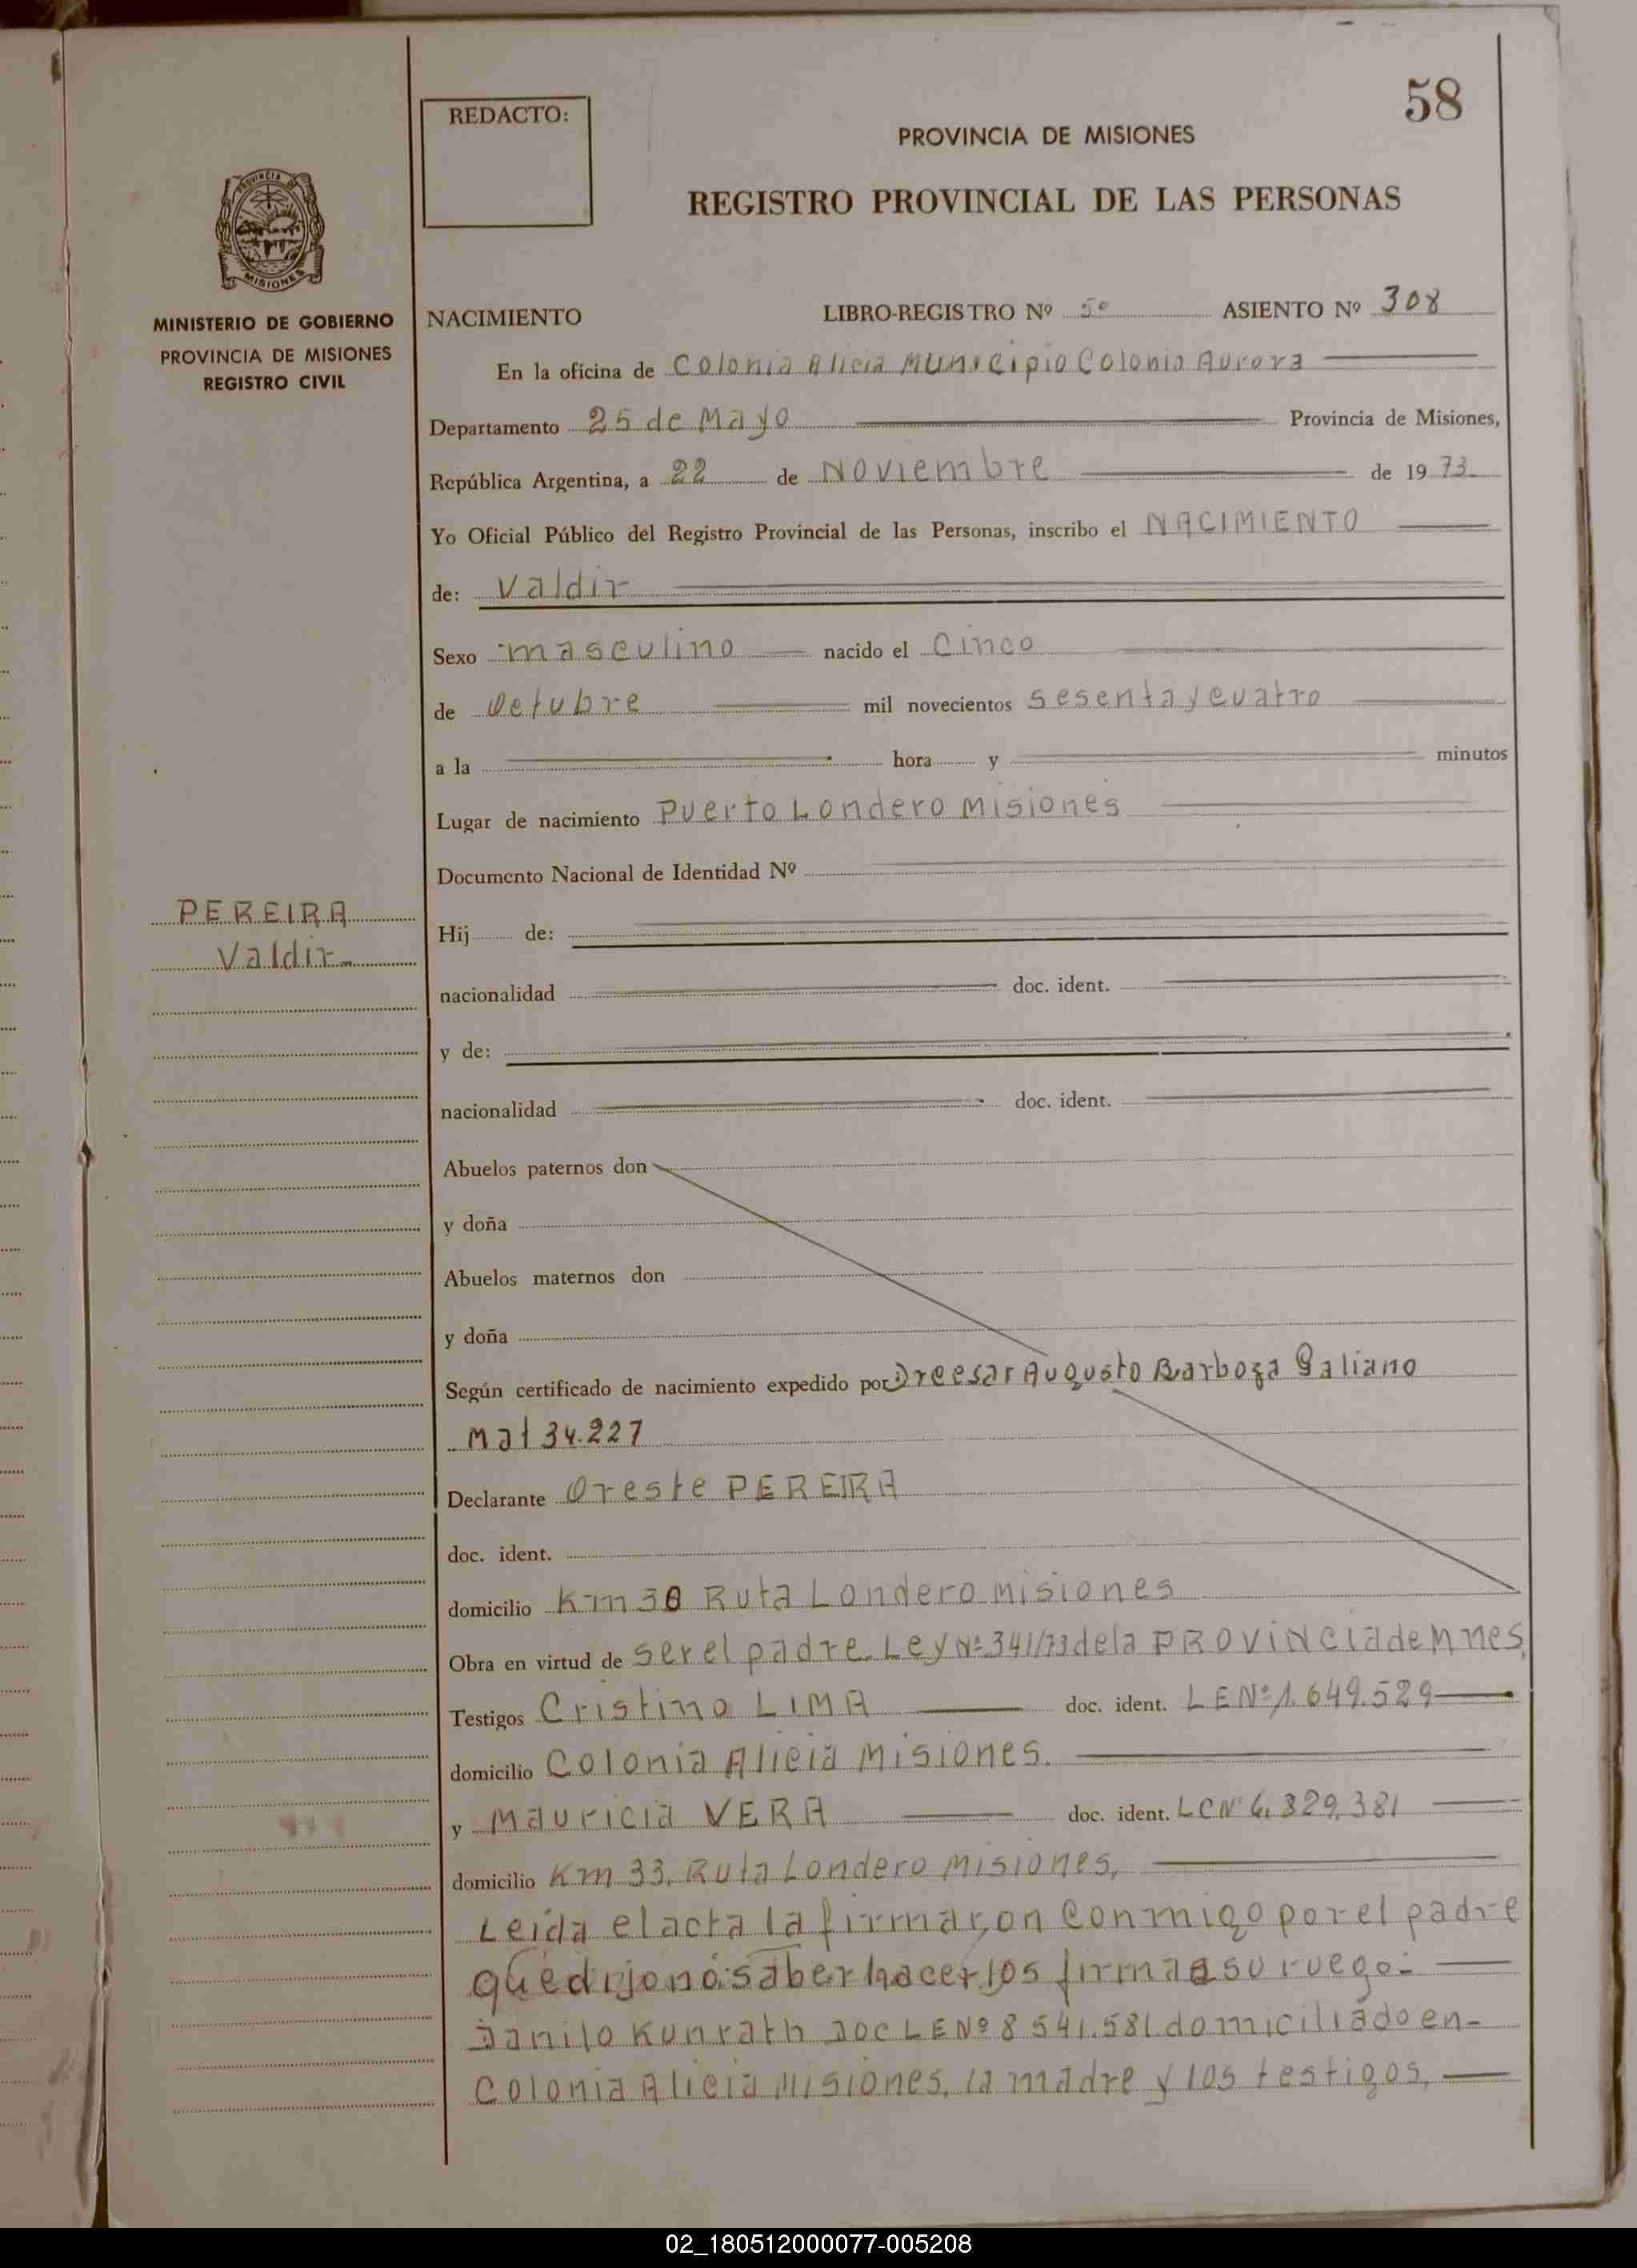 58
REDACTO:
PROVINCIA DE MISIONES
REGISTRO PROVINCIAL DE LAS PERSONAS
PROVINCIA DE
MISIONES
MINISTERIO DE GOBIERNO
PROVINCIA DE MISIONES
REGISTRO CIVIL
NACIMIENTO LIBRO-REGISTRO Nº 5º ASIENTO Nº 308
En la oficina de Colonia Alicia Municipio Colonia Aurora
Departamento 25 de Mayo Provincia de Misiones,
República Argentina, a 22 de Noviembre de 1973.
Yo Oficial Público del Registro Provincial de las Personas, inscribo el NACIMIENTO
de: Valdir
Sexo masculino nacido el Cinco
de Octubre mil novecientos sesenta y cuatro
a la hora y minutos
Lugar de nacimiento Puerto Londero Misiones
Documento Nacional de Identidad Nº
PEREIRA
Valdir
Hij de:
nacionalidad doc. ident.
y de:
nacionalidad doc. ident.
Abuelos paternos don
y doña
Abuelos maternos don
y doña
Según certificado de nacimiento expedido por Dr cesar Augusto Barboza Galiano
Mat 34.227
Declarante Oreste PEREIRA
doc. ident.
domicilio Km 38 Ruta Londero Misiones
Obra en virtud de ser el padre. Ley Nº 341/73 de la PROVINCIA de Mnes,
Testigos Cristino LIMA doc. ident. LE Nº 1.649.529
domicilio Colonia Alicia Misiones.
y Mauricia VERA doc. ident. LC Nº 6.829.381
domicilio Km 33. Ruta Londero Misiones,
Leida el acta la firmaron conmigo por el padre
que dijo no saber hacerlos firma a su ruego:
Danilo Kunrath Doc LE Nº 8 541.581 domiciliado en-
Colonia Alicia Misiones, la madre y los testigos,
02_180512000077-005208